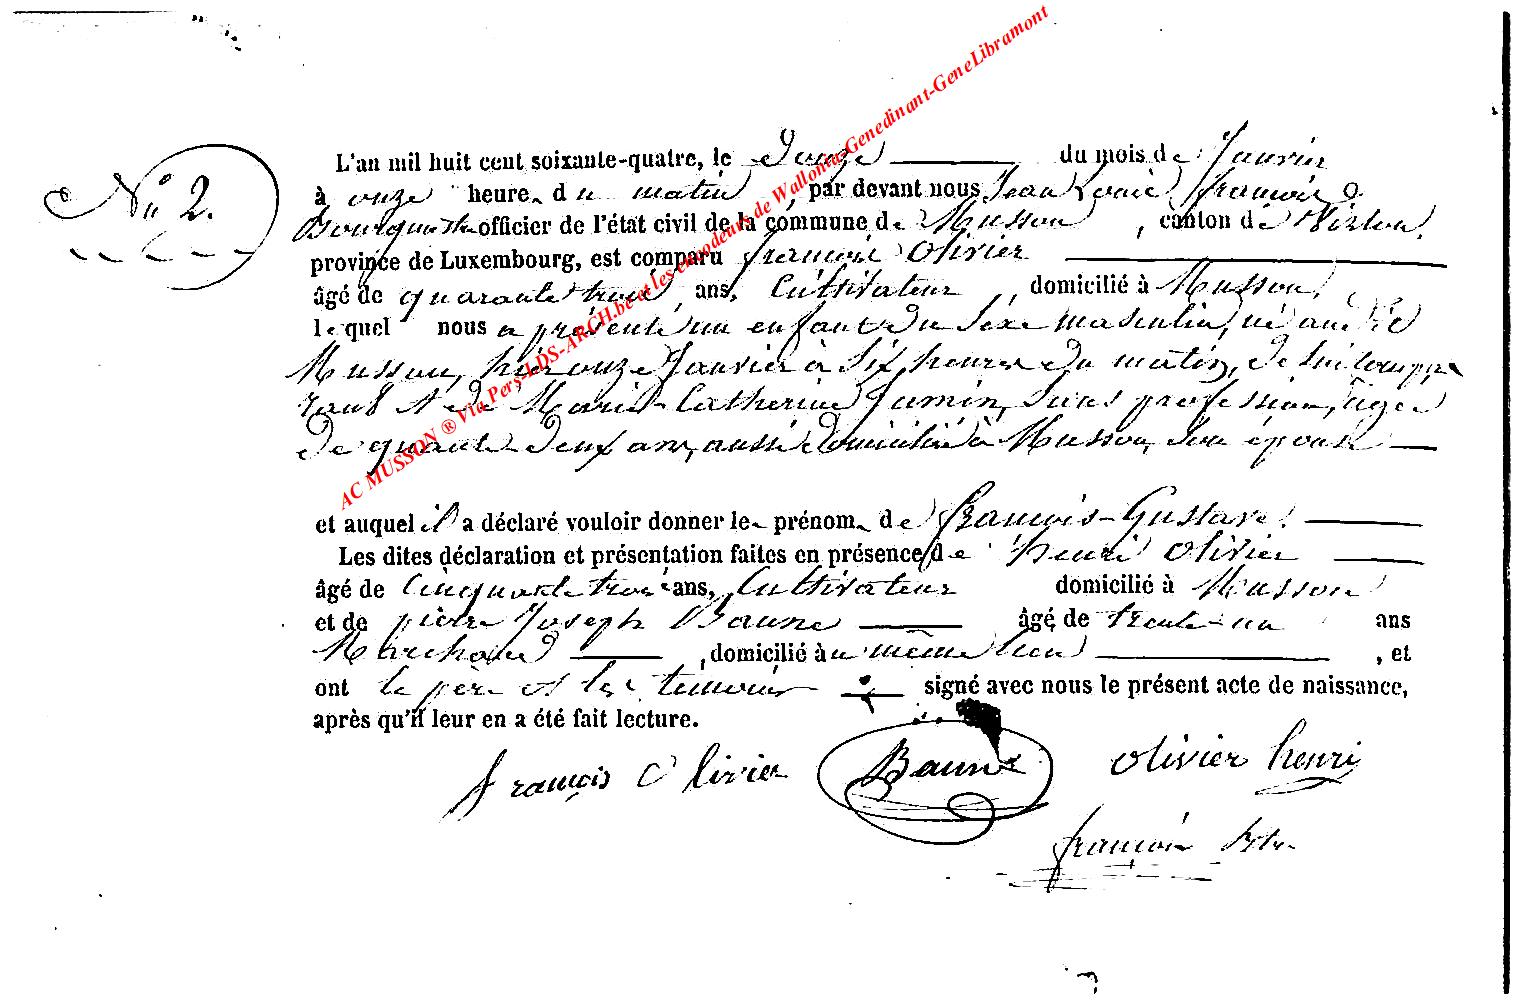 N° 2.
L'an mil huit cent soixante-quatre, le Douze du mois de Janvier
à onze heure du matin, par devant nous Jean Louis François,
Bourgmestre officier de l'état civil de la commune de Musson, canton de Virton,
province de Luxembourg, est comparu françois Olivier
âgé de quarante trois ans, Cultivateur, domicilié à Musson,
lequel nous a présenté un enfant du Sexe masculin, né audit
Musson, hier onze Janvier à Six heures du matin, de lui compa-
rant et de Marie-Catherine Jumin, Sans profession, âgée
de quarante Deux ans, aussi domiciliée à Musson, Son épouse
et auquel il a déclaré vouloir donner le prénom de François-Gustave.
Les dites déclaration et présentation faites en présence de henri Olivier
âgé de Cinquante trois ans, Cultivateur domicilié à Musson
et de pierre Joseph Baune âgé de trente-un ans
Marchand, domicilié au même lieu, et
ont le père et les témoins signé avec nous le présent acte de naissance,
après qu'il leur en a été fait lecture.
françois Olivier Baune Olivier henri
françois
AC MUSSON ® Via Pers-LDS-ARCH.be et les encodeurs de Wallonia-Genedinant-GeneLibramont